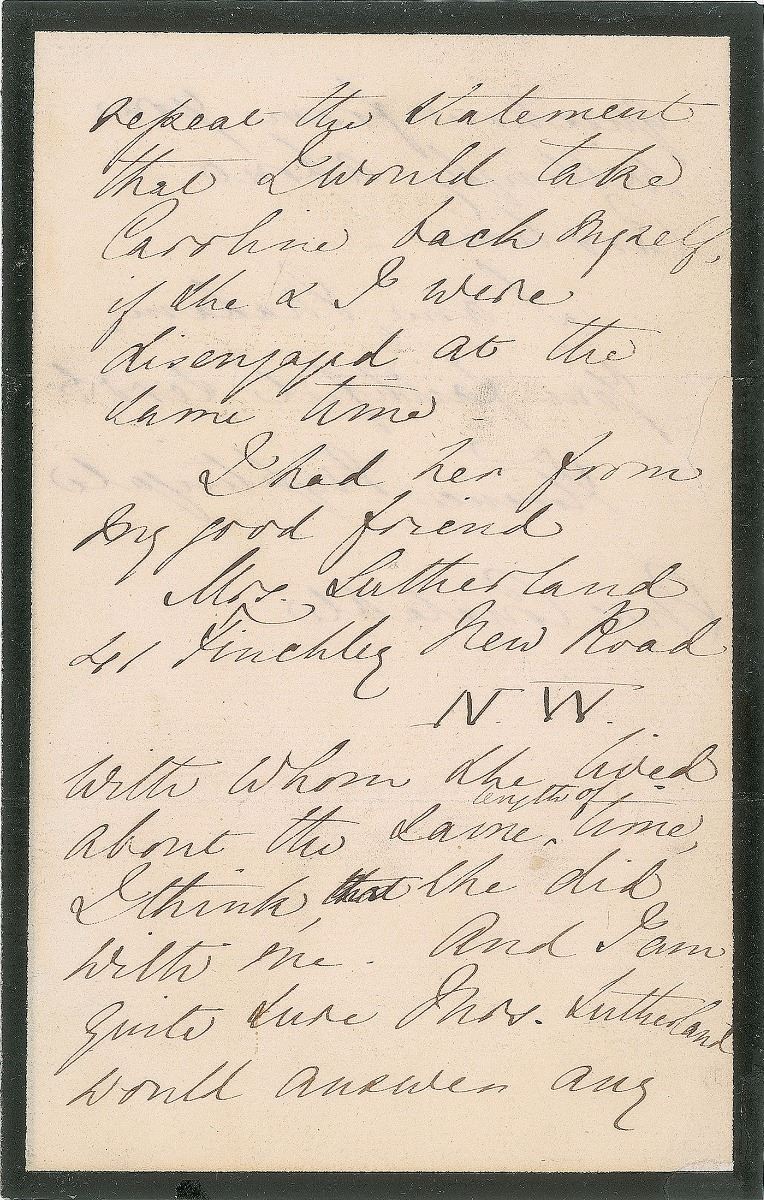 repeat the statement
that I would take
Caroline back myself,
if she & I were
disengaged at the
same time
I had her from
my good friend
Mrs. Sutherland
41 Finchley New Road
N. W.
with whom she lived
about the same length of time,
I think, that she did
with me. And I am
quite sure Mrs. Sutherland
would answer any